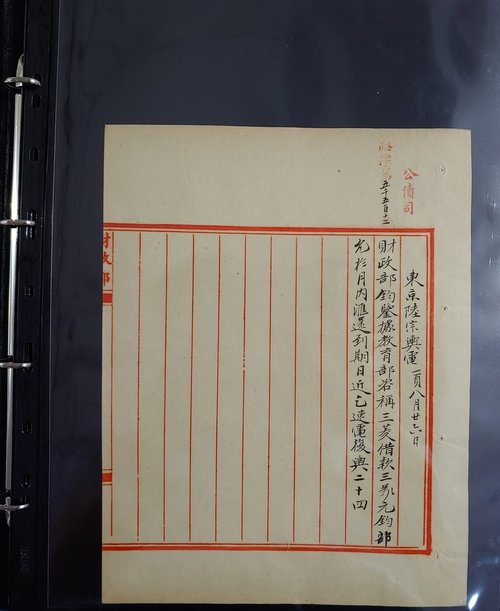 公債司
收字第五千五百十二
東京陸宗輿電 一頁 八月廿六日
財政部鈞鑒據教育部咨稱三菱借款三萬元鈞部
允於月內匯還到期日近乞速電復輿二十四
財政部